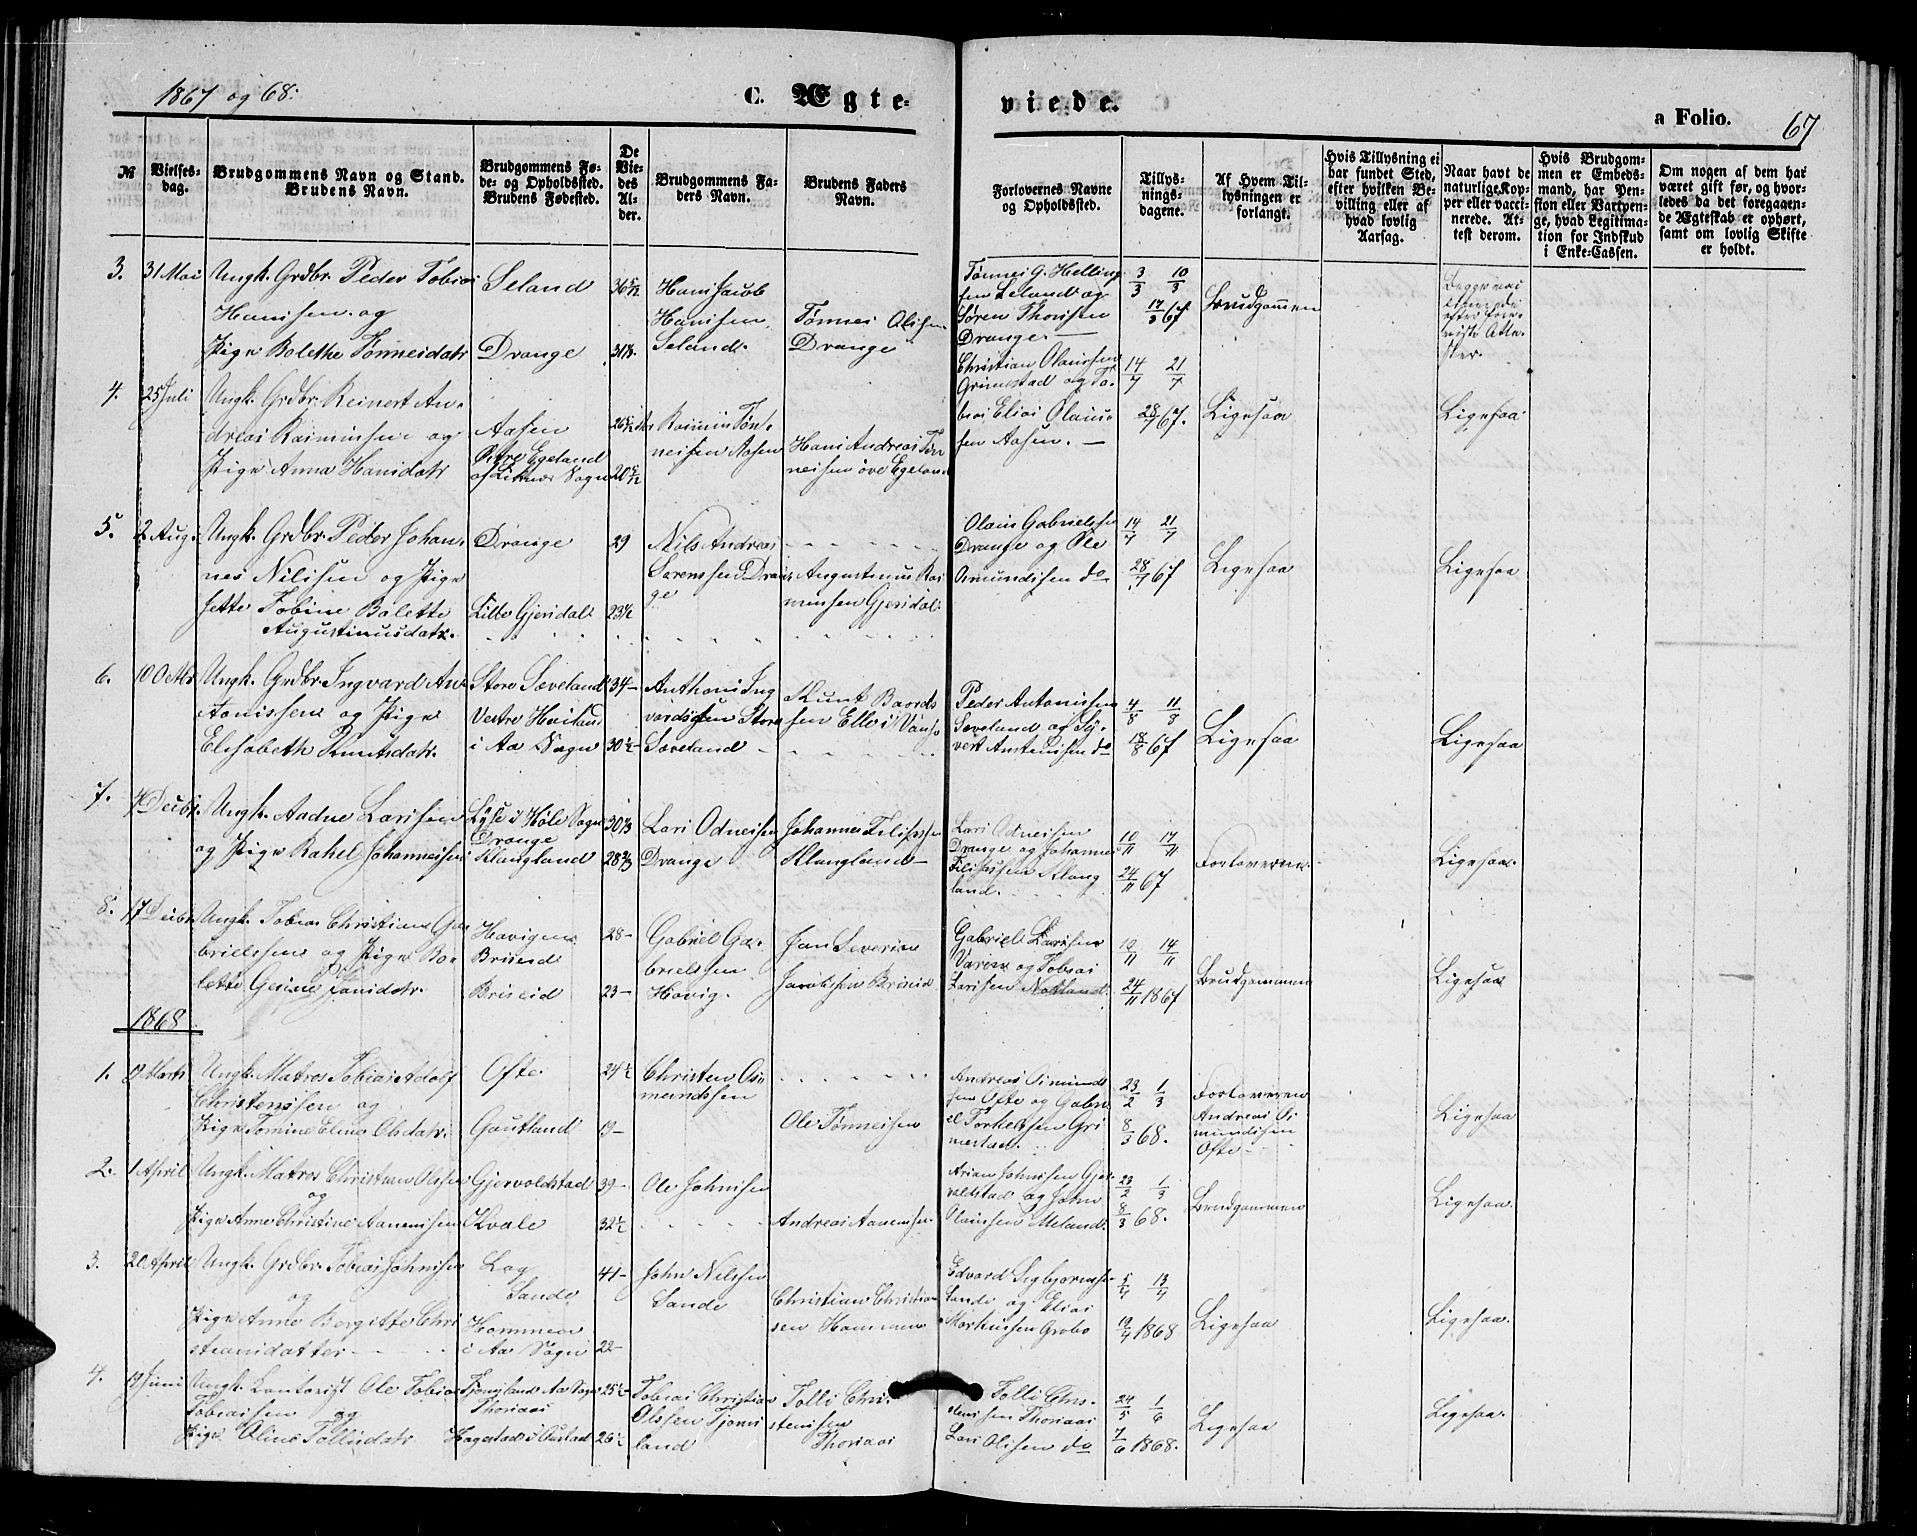 1867 og 68.
C. Ægte-
viede.
a Folio.
67
№
Vielses-
dag.
Brudgommens Navn og Stand.
Brudens Navn.
Brudgommens Fø-
de- og Opholdssted.
Brudens Fødested.
De
Vie-
des
Al-
der.
Brudgommens Fa-
ders Navn.
Brudens Faders
Navn.
Forlovernes Navne
og Opholdssted.
Tillys-
nings-
dagene.
Af Hvem Til-
lysningen er
forlangt.
Hvis Tillysning ei
har fundet Sted,
efter hvilken Be-
villing eller af
hvad lovlig
Aarsag.
Naar havt de
naturlige Kop-
per eller vacci-
nerede. At-
test derom.
Hvis Brudgom-
men er Embeds-
mand, har Pen-
sion eller Vartpen-
ge, hvad Legitima-
tion for Indskud
i Enke-Cassen.
Om nogen af dem har
været gift før, og hvor-
ledes da det foregaaen-
de Ægteskab er ophørt,
samt om lovlig Skifte
er holdt.
3. 31 Mai Ungk. Grdbr. Peder Tobias
Hanssen og
Pige Bolethe Tønnesdatr
Seland
Drange
Hans Jacob
Hanssen
Seland.
Tønnes Olssen
Drange
Tønnes G. Helling
sen Seland og
Søren Thorssen
Drange.
3/3 10/3
17/3 67
Brudgommen
4. 25 Juli Ungk. Grdbr. Reinert An-
dreas Rasmussen og
Pige Anna Hansdatr
Aasen
Østre Egeland
Rasmus Tøn-
nessen Aasen
Hans Andreas Tøn
nessen øvre Egeland
Christian Olaussen
Grimestad og To-
bias Elias Olaus-
sen Aasen.
14/7 21/7
28/7 67.
Ligesaa
Ligesaa
5. 2 Aug. Ungk. Grdbr. Peder Johan-
nes Nilssen og Pige
Tobine Bolette
Augustinusdatr.
Drange
Lille Gjersdal
29
23½
Nils Andreas
Sørenssen Dran
ge
Augustinus Ras
mussen Gjersdal.
Olaus Gabrielssen
Drange og Ole
Omundssen do
14/7 21/7
28/7 67
Ligesaa
Ligesaa
6. 10 Ungk. Grdbr. Ingvard An-
tonissen og Pige
Elisabeth Knutsdatr.
Store Sæveland
Vestre
i Aa Sogn
34
30½
Anthoni Ing
vardssen Store
Sæveland
Knut Baards
sen Elle i Vanse
Peder Antonissen
Sæveland og Sy-
vert Antonissen do
4/8 11/8
18/8 67
Ligesaa
Ligesaa
7. 4 Decbr. Ungk. Aadne Larssen
og Pige Rahel Johannessen
Lyse i Høle Sogn
Drange
Klungland
Lars Odnessen
Drange
Johannes
Klungland
Lars Odnessen
Drange og Johannes
Klung
land.
10/11 17/11
24/11 67
Forloverne.
Ligesaa.
8. 17 Decbr. Ungk. Tobias Christian Ga-
brielssen og Pige Bo-
lette Gesine Jansdatr.
Briseid
Briseid
28
23
Gabriel Ga-
brielssen
Havig.
Jan Severin
Jacobssen Briseid
Gabriel Larssen
og Tobias
Larssen
10/11 14/11
24/11 1867
Brudgommen
Ligesaa
1868
1. Marts Ungk. Matros Tobias Adolf
Christenssen og
Pige Tomine Eline Olsdatr.
Ofte
Gautland
24½
19
Christen Os-
mundssen
Ole Tønnessen
Andreas Osmunds
sen Ofte og Gabri
el Torkelssen Gri
mestad.
23/2 1/3
8/3 68.
Forloveren
Andreas Os
mundssen
Ofte
Ligesaa
2. 1 April Ungk. Matros Christian Olssen
og
Pige Anne Christine Aanenssen
Gjervoldstad
Kvale
39
32½
Ole Johnssen
Andreas Aanenssen
Arian Johnssen Gjer
voldstad og John
Olaussen Meland.
23/2 1/3
8/3 68.
Brudgommen
Ligesaa.
3. 20 April Ungk. Grdbr. Tobias Johnssen
og
Pige Anne Bergitte Chri
stiansdatter
Sande
i Aa Sogn
41
22
John Nilssen
Sande
Christian Christian
sen Hammen
Edvard Sigbjørnsen
Sande og Elias
Markussen Grobo
5/4 13/4
19/4 1868
Ligesaa
Ligesaa.
4. 19 Juni Ungk. Ole Tobias
Tobiassen og
Pige Oline Tollisdatr
Aa Sogn
Tobias Christian
Olssen
land
Tolli Chri-
stenssen
Tolli Chri-
stenssen
Lars Olssen do
24/5 1/6
7/6 1868.
Ligesaa
Ligesaa.